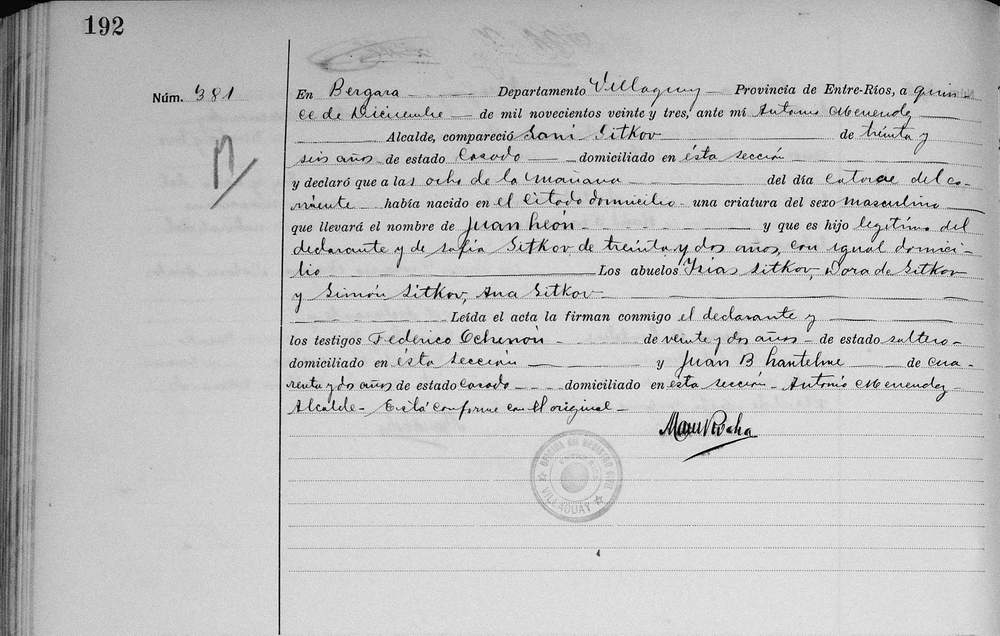 192
Núm. 381
En Bergara Departamento Villaguay Provincia de Entre-Ríos, a quin-
ce de Diciembre de mil novecientos veinte y tres, ante mí Antonio Menendez
Alcalde, compareció Sani Sitkov de treinta y
seis años de estado Casado domiciliado en ésta sección
y declaró que a las ocho de la mañana del día catorce del co-
rriente había nacido en el citado domicilio una criatura del sexo masculino
que llevará el nombre de Juan León y que es hijo legitimo del
declarante y de Sofia Sitkov, de treinta y dos años, con igual domici-
lio Los abuelos Isias Sitkov, Dora de Sitkov
y Simón Sitkov, Ana Sitkov
Leída el acta la firman conmigo el declarante y
los testigos Federico de veinte y dos años de estado soltero
domiciliado en ésta sección y Juan B de cua-
renta y dos años de estado casado domiciliado en esta sección Antonio Menendez
Alcalde Está conforme con el original
OFICINA DE REGISTRO CIVIL
VILLAGUAY